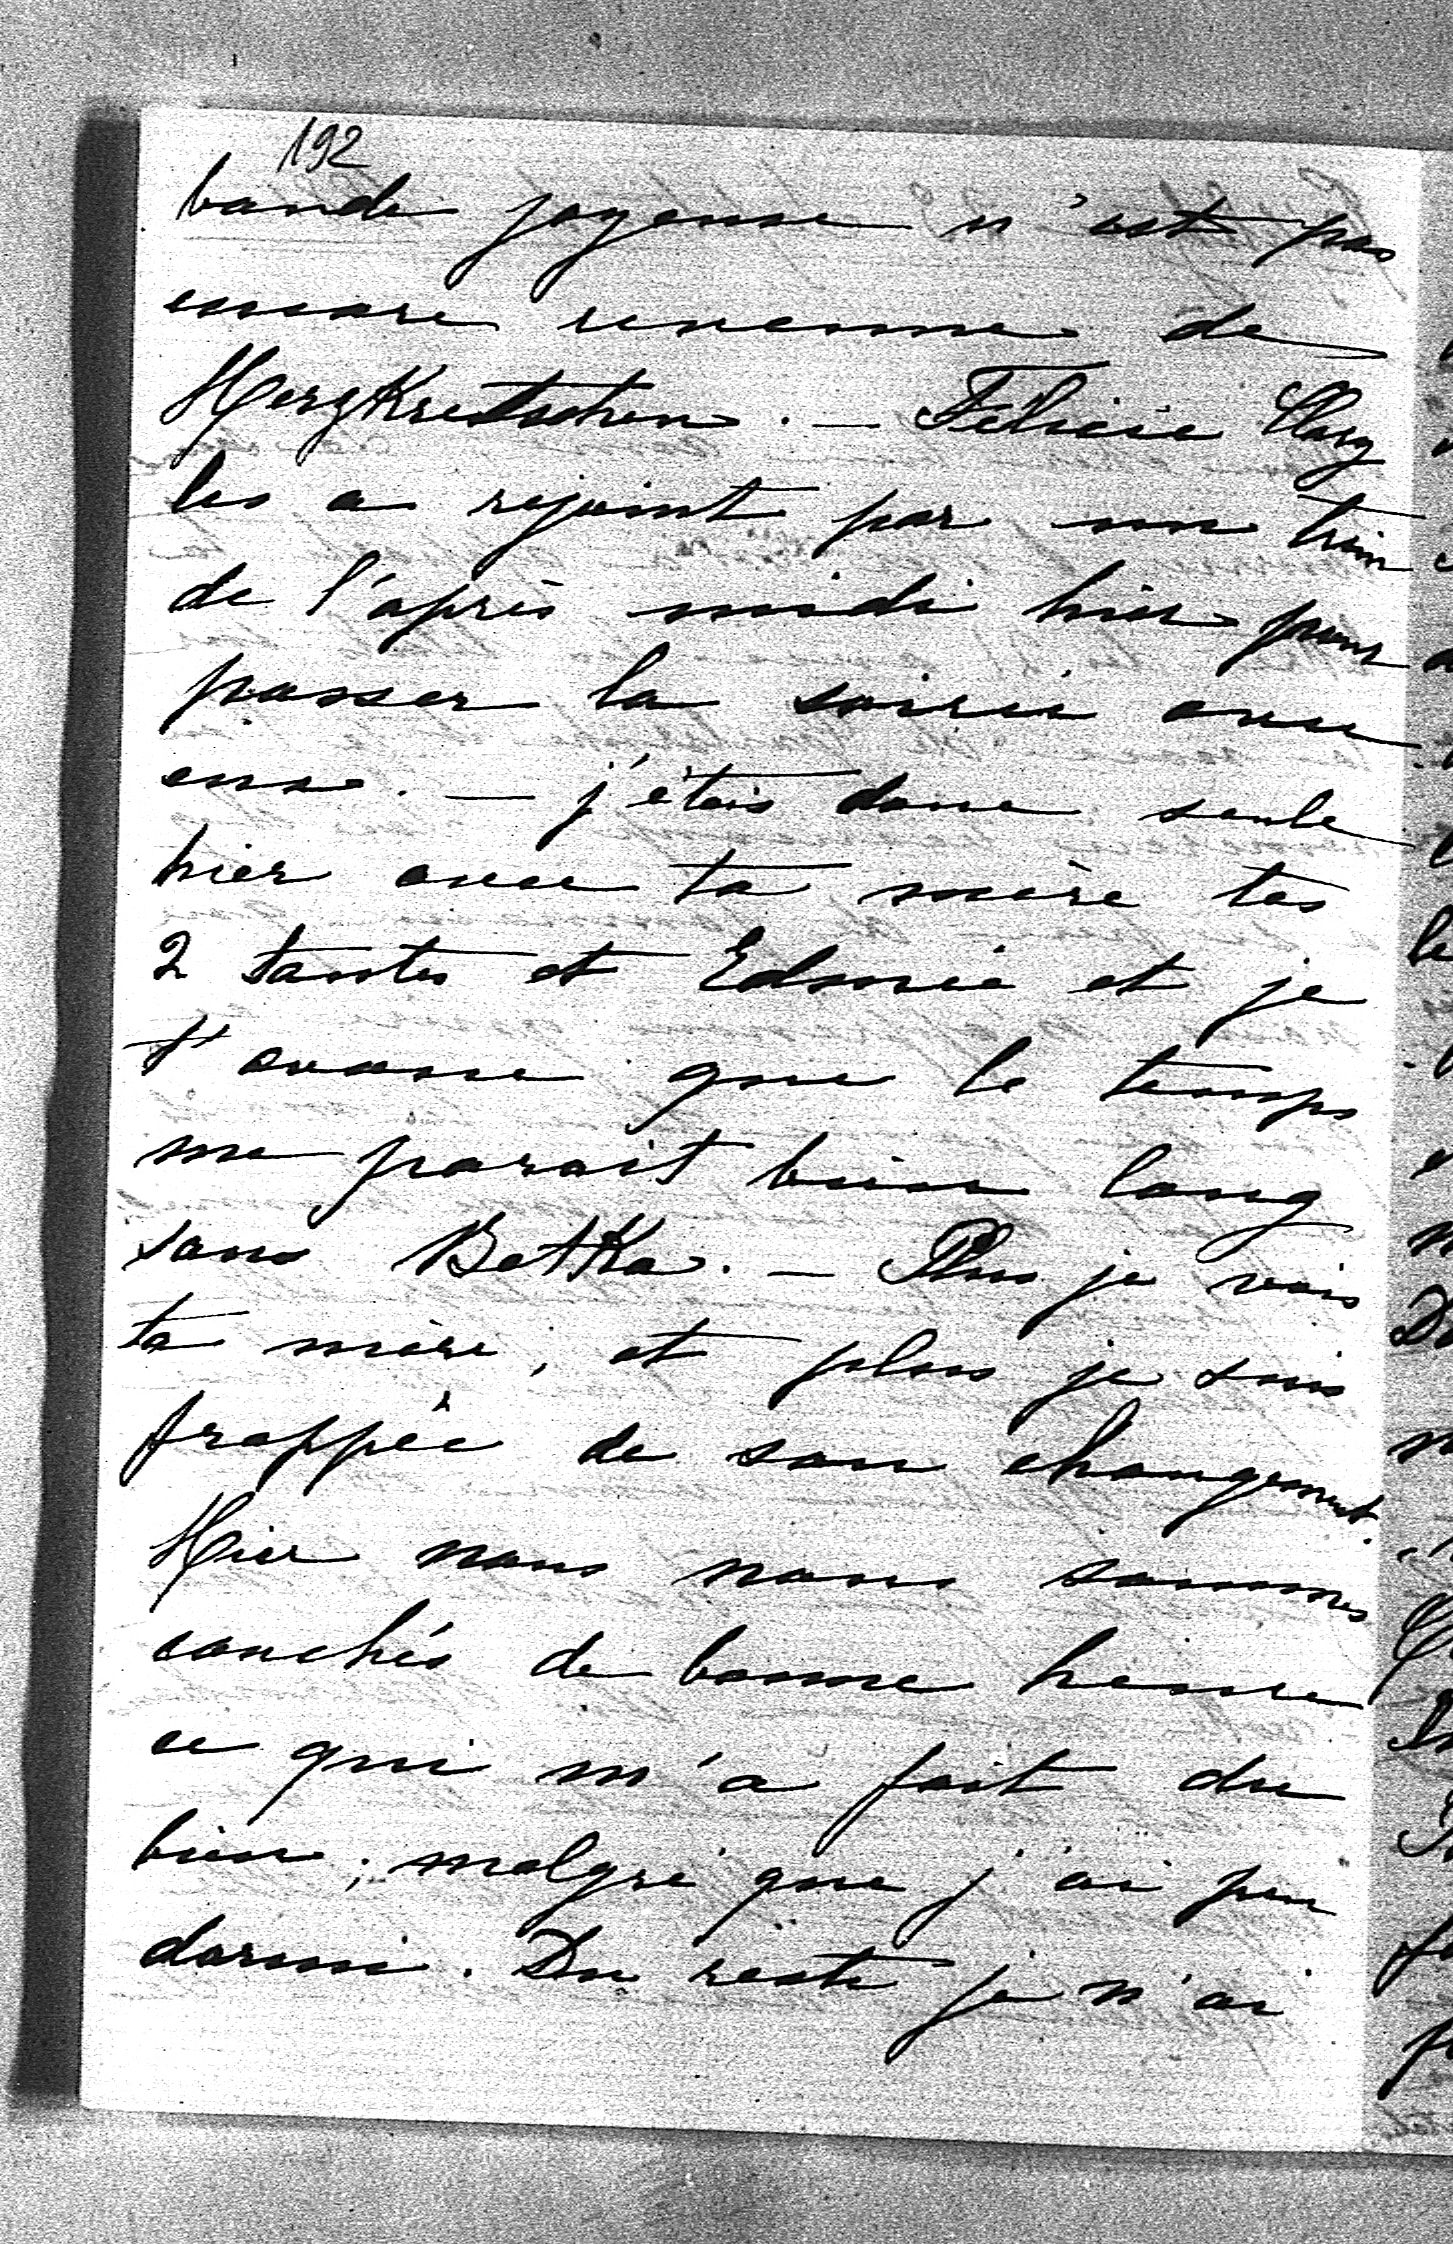 192
bande joyeuse n'est pas
encore revenue de
Herzkretschen. — Félicie Clary
les a rejoint par un train
de l'après midi hier pour
passer la soirée avec
eux. — j'étais donc seule
hier avec ta mère tes
2 tantes et Edmée et je
t'avoue que le temps
me parait bien long
sans Betka. — Plus je vois
ta mère, et plus je suis
frappée de son changement.
Hier nous nous sommes
couchés de bonne heure
ce qui m'a fait du
bien; malgré que j'ai peu
dormi. Du reste je n'ai